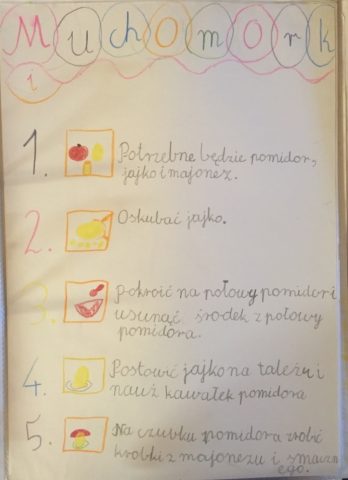 Muchomork
i
1. Potrzebne będzie pomidor,
jajko i majonez.
2. Oskubać jajko.
3. pokroić na połowy pomidori
usunąć środek z połowy
pomidora.
4. Postawić jajko na tależu i
nauż kawałek pomidora
5. Na czubku pomidora zrobić
kropki z majonezu i smaczn
ego.